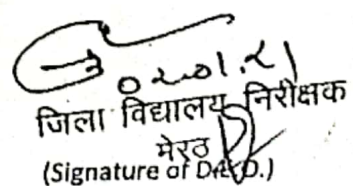 02.01.21
जिला विद्यालय निरीक्षक
मेरठ
(Signature of D.I.O.)